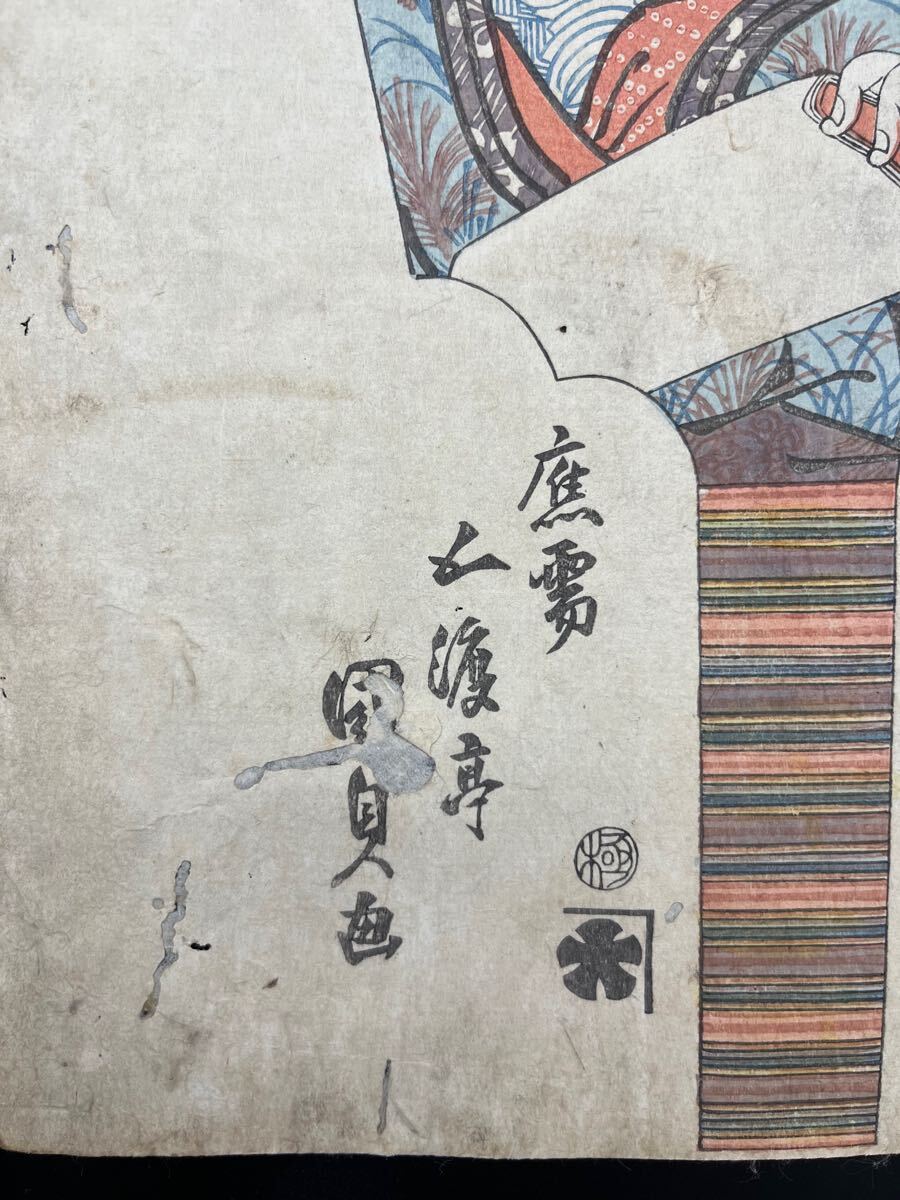 應需
五渡亭
國貞画
極